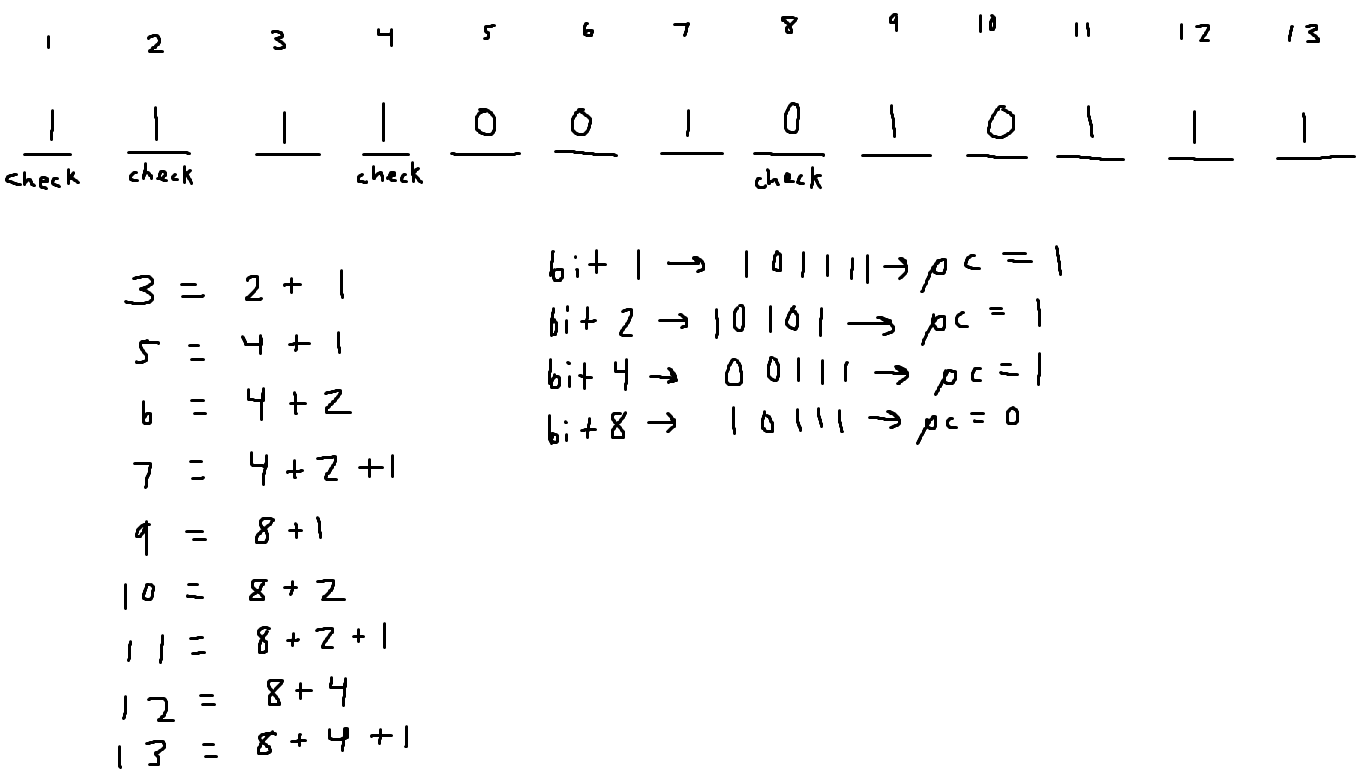 1 2 3 4 5 6 7 8 9 10 11 12 13
1 1 1 1 0 0 1 0 1 0 1 1 1
check check check check
3 = 2 + 1
5 = 4 + 1
6 = 4 + 2
7 = 4 + 2 + 1
9 = 8 + 1
10 = 8 + 2
11 = 8 + 2 + 1
12 = 8 + 4
13 = 8 + 4 + 1
bit 1 → 101111 → pc = 1
bit 2 → 10101 → pc = 1
bit 4 → 00111 → pc = 1
bit 8 → 10111 → pc = 0